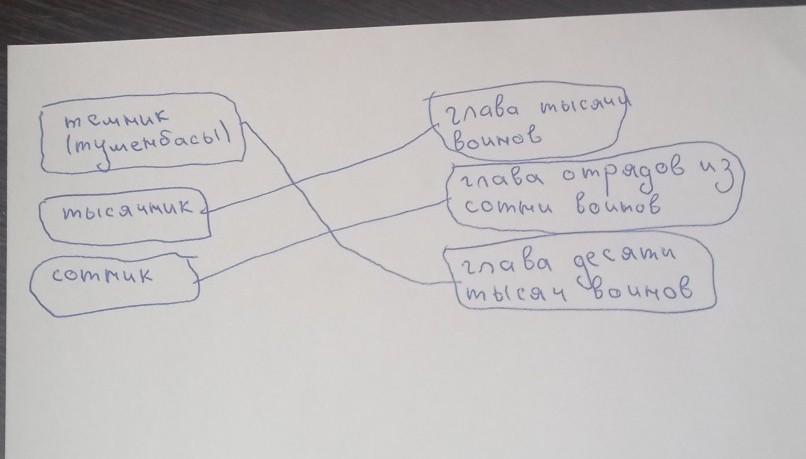 темник
(тушенбасы)
тысячник
сотник
глава тысячи
воинов
глава отрядов из
сотни воинов
глава десяти
тысяч воинов